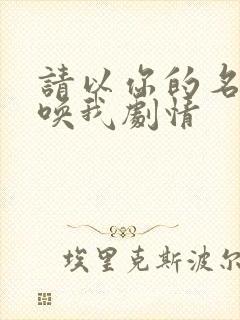 請以你的名
喚我劇情
埃里克斯波尔